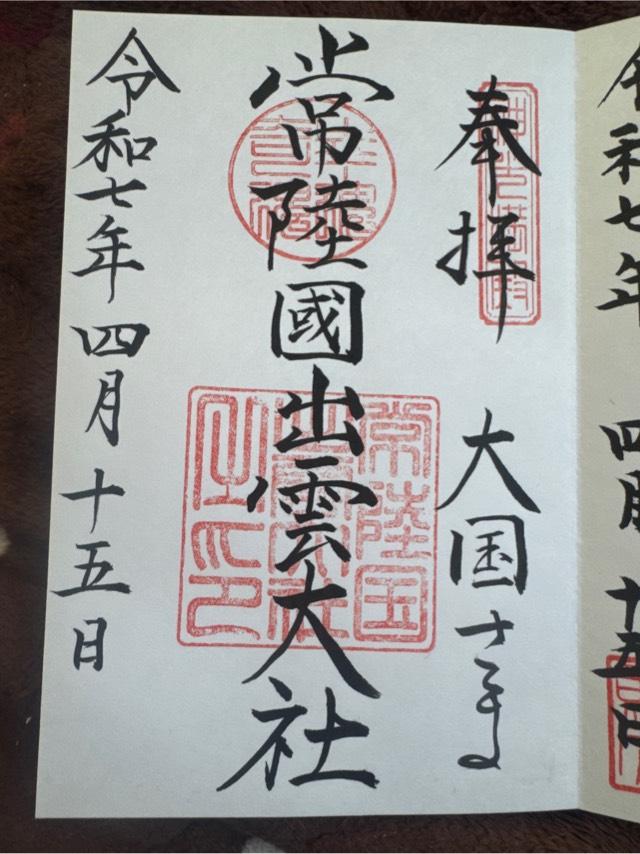 奉拝
大国さま
常陸國出雲大社
常陸国
出雲大社
之印
令和七年四月十五日
令和七年
四月
十五日